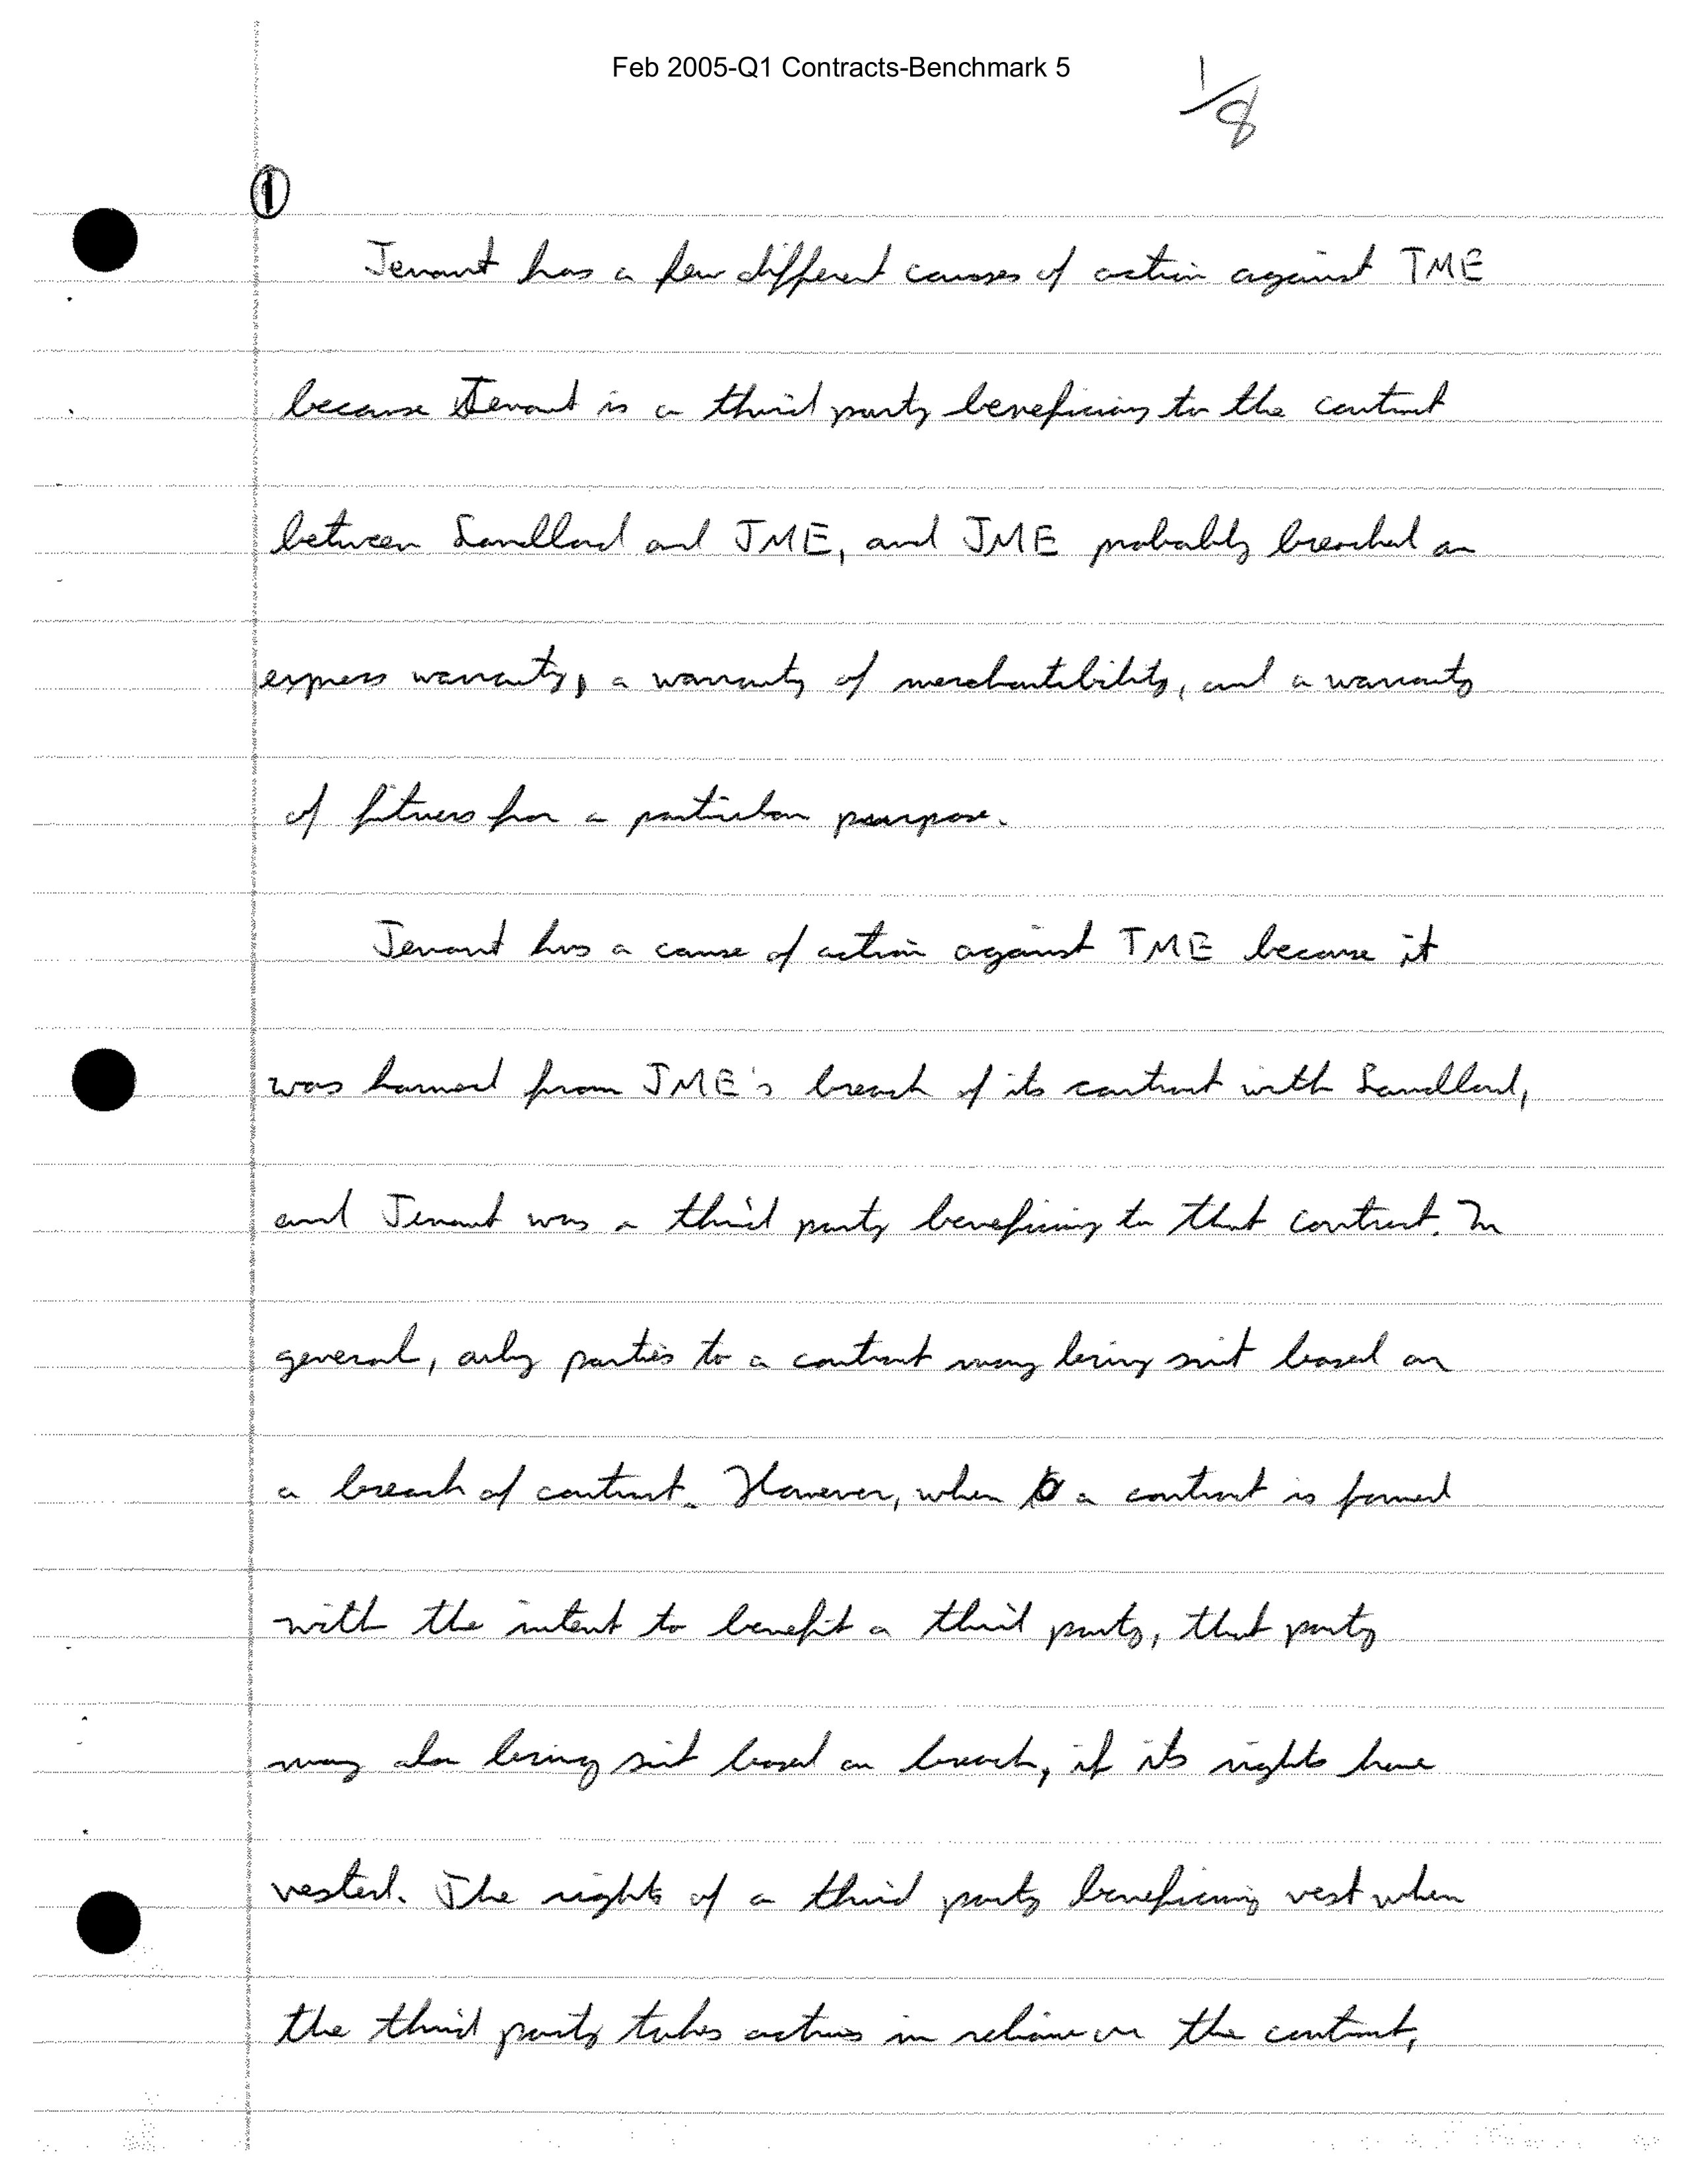 Feb 2005-Q1 Contracts-Benchmark 5
1/8
1
Tenant has a few different causes of action against TME
because Tenant is a third party beneficiary to the contract
between Landlord and TME, and TME probably breached an
express warranty, a warranty of merchantibility, and a warranty
of fitness for a particular purpose.
Tenant has a cause of action against TME because it
was harmed from TME's breach of its contract with Landlord,
and Tenant was a third party beneficiary to that contract. In
general, only parties to a contract may bring suit based on
a breach of contract. However, when a contract is formed
with the intent to benefit a third party, that party
may also bring suit based on breach, if its rights have
vested. The rights of a third party beneficiary vest when
the third party takes actions in reliance on the contract,